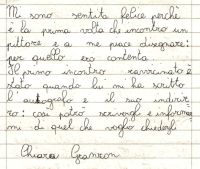 Mi sono sentita felice perché
è la prima volta che incontro un
pittore e a me piace disegnare:
per quello ero contenta.
Il primo incontro ravvicinato è
stato quando lui mi ha scritto
l'autografo e il suo indiriz-
zo: così potrò scrivergli e informar
mi di quel che voglio chiedergli
Chiara